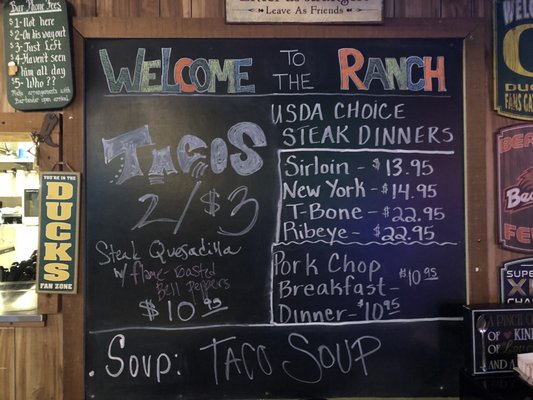 Bar Phone Fees
$1- Not here
$2- On his way out
$3- Just Left
$4- Haven't seen
him all day
$5- Who??
Make arrangements with
Bartender ahead of time
Leave As Friends
WELCOME TO THE RANCH
TACOS
2/$3
Steak Quesadilla
w/ flame-roasted
Bell peppers
$10.95
USDA CHOICE
STEAK DINNERS
Sirloin - $13.95
New York - $14.95
T-Bone - $22.95
Ribeye - $22.95
Pork Chop
$10.95
Breakfast-
Dinner - $10.95
Soup: TACO SOUP
YOU'RE IN THE
DUCKS
FAN ZONE
WELCOME
DUCKS
FANS
SUPER
A PINCH OF
of KIND
of LOVE